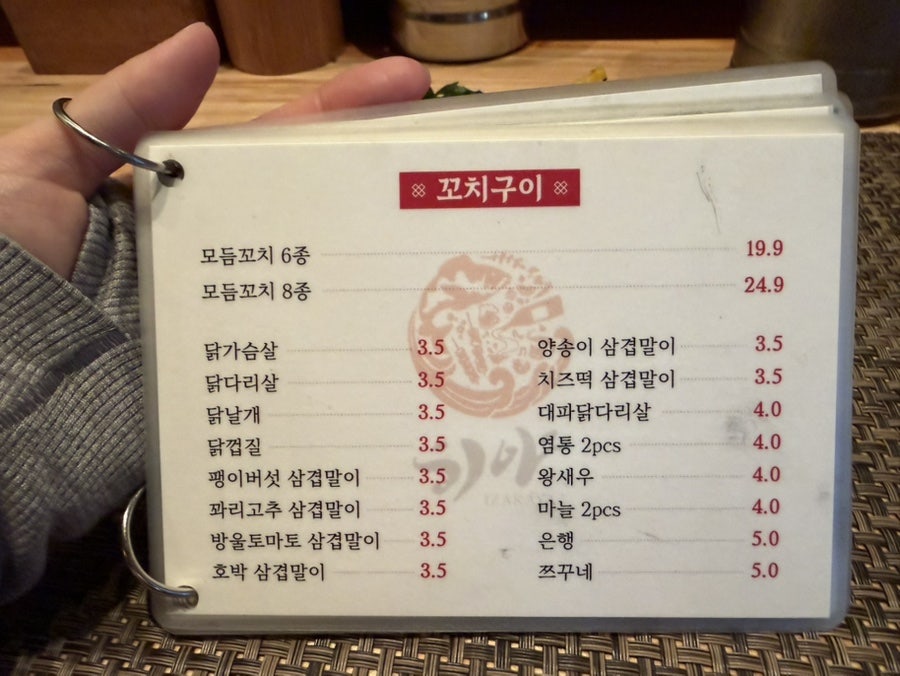 꼬치구이
모듬꼬치 6종 19.9
모듬꼬치 8종 24.9
닭가슴살 3.5
닭다리살 3.5
닭날개 3.5
닭껍질 3.5
팽이버섯 삼겹말이 3.5
꽈리고추 삼겹말이 3.5
방울토마토 삼겹말이 3.5
호박 삼겹말이 3.5
양송이 삼겹말이 3.5
치즈떡 삼겹말이 3.5
대파닭다리살 4.0
염통 2pcs 4.0
왕새우 4.0
마늘 2pcs 4.0
은행 5.0
쯔꾸네 5.0